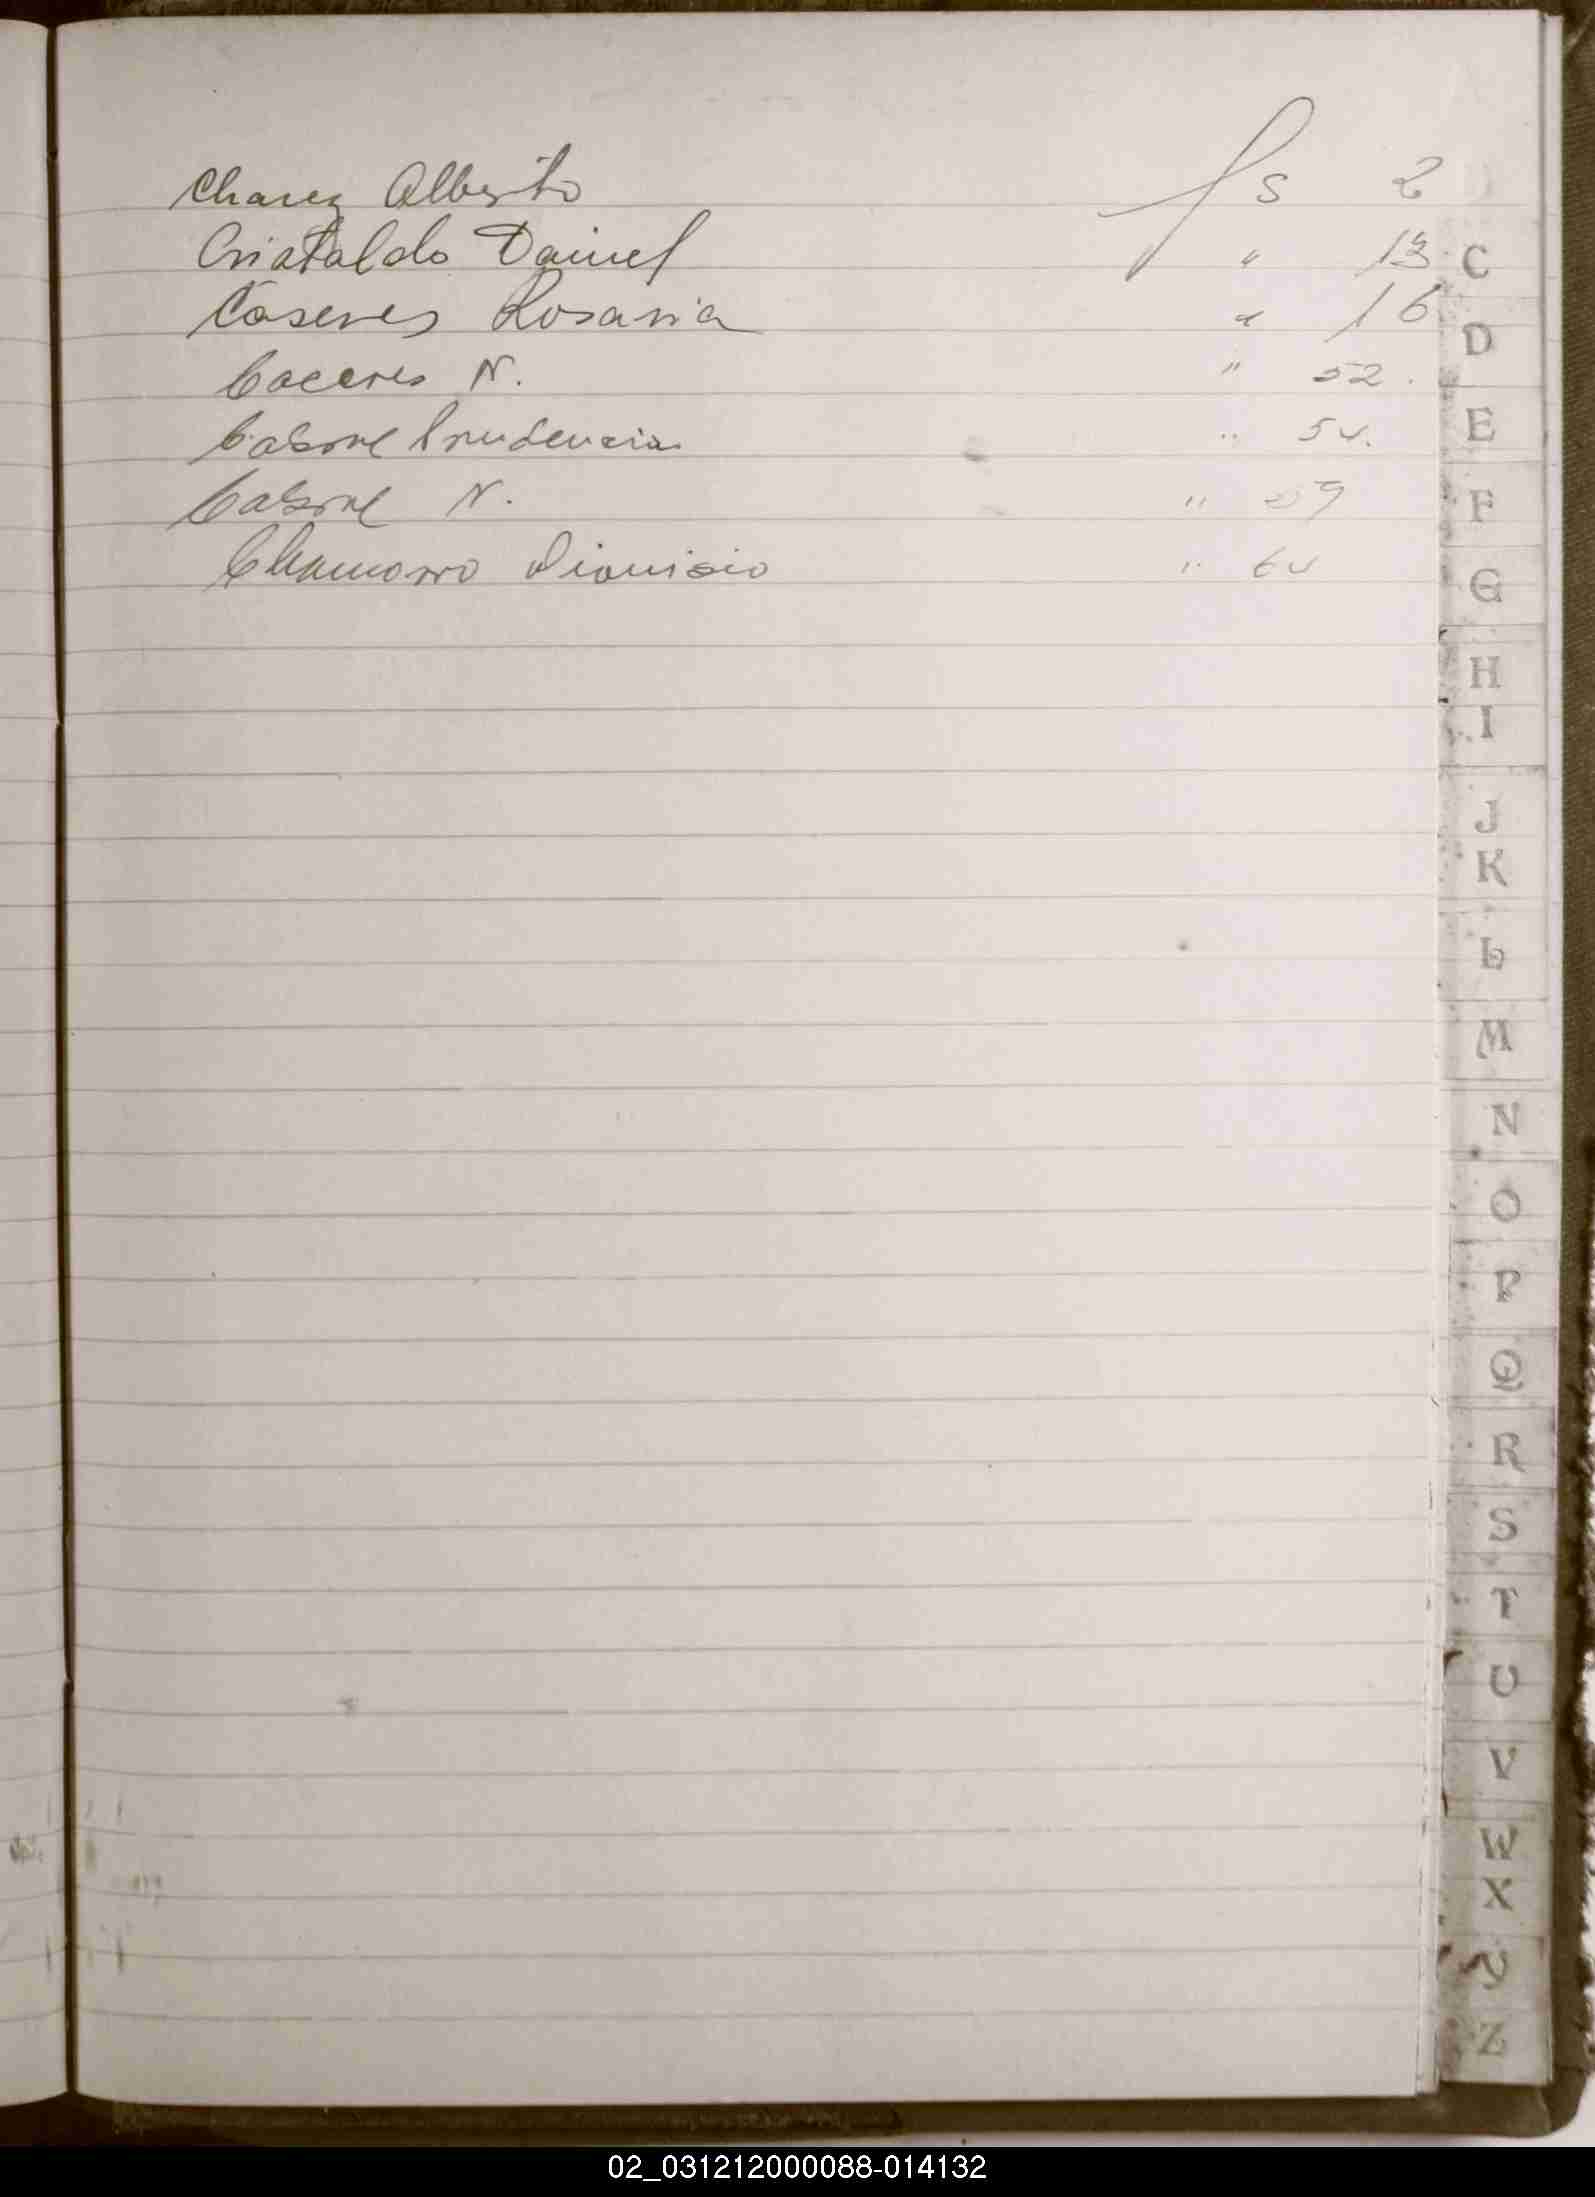 Chavez Alberto fs 2
Cristaldo Dainel " 13
Caseres Rosaria " 16
Caceres N. " 52.
Cabral Prudencia " 54.
Cabral N. " 59
Chamorro Dionisio " 64
C
D
E
F
G
H
I
J
K
L
M
N
O
P
Q
R
S
T
U
V
W
X
Y
Z
02_031212000088-014132